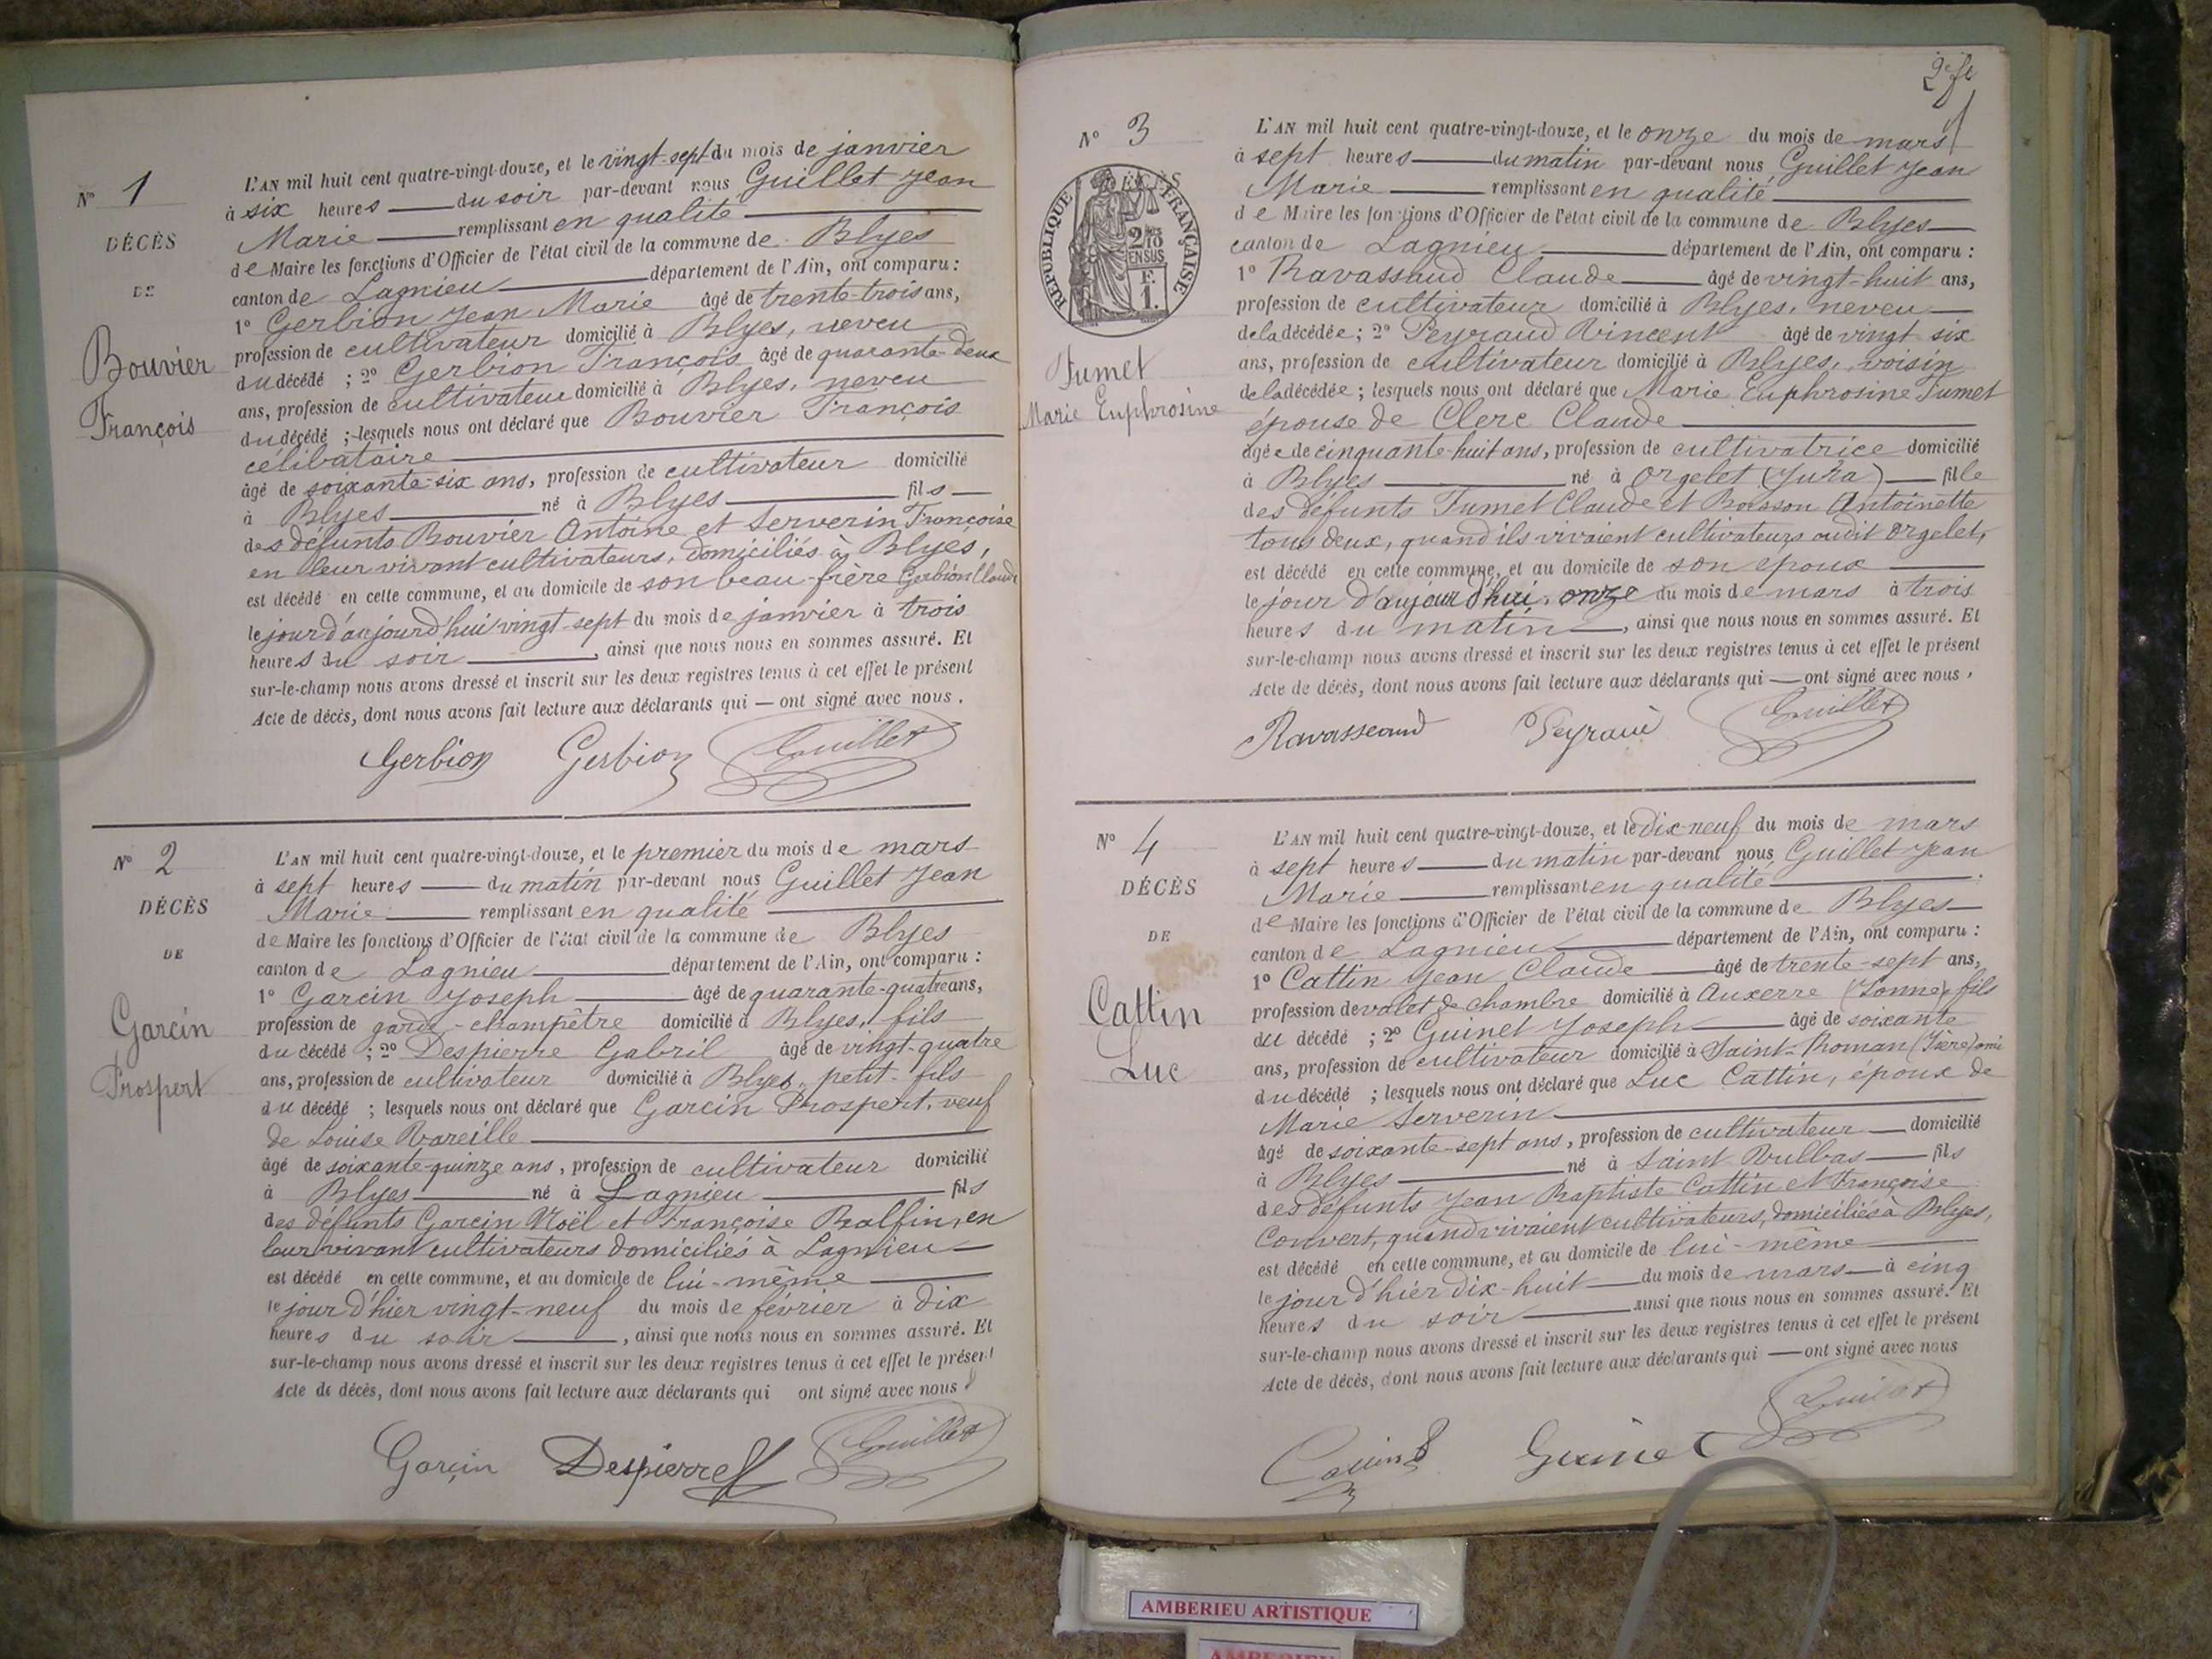 N° 1
DÉCÈS
DE
Bouvier
François
L'AN mil huit cent quatre-vingt-douze, et le vingt-sept du mois de janvier
à six heures du soir par-devant nous Guillet Jean
Marie remplissant en qualité
de Maire les fonctions d'Officier de l'état civil de la commune de Blyes
canton de Lagnieu département de l'Ain, ont comparu :
1° Gerbion Jean Marie âgé de trente-trois ans,
profession de cultivateur domicilié à Blyes, neveu
du décédé ; 2° Gerbion François âgé de quarante-deux
ans, profession de cultivateur domicilié à Blyes, neveu
du décédé ; lesquels nous ont déclaré que Bouvier François
célibataire
âgé de soixante-six ans, profession de cultivateur domicilié
à Blyes né à Blyes fils
des défunts Bouvier Antoine et Serverin Françoise
en leur vivant cultivateurs, domiciliés à Blyes,
est décédé en cette commune, et au domicile de son beau-frère Gerbion Claude
le jour d'aujourd'hui vingt-sept du mois de janvier à trois
heures du soir, ainsi que nous nous en sommes assuré. Et
sur-le-champ nous avons dressé et inscrit sur les deux registres tenus à cet effet le présent
Acte de décès, dont nous avons fait lecture aux déclarants qui — ont signé avec nous.
Gerbion Gerbion Guillet
N° 2
DÉCÈS
DE
Garcin
Prospert
L'AN mil huit cent quatre-vingt-douze, et le premier du mois de mars
à sept heures du matin par-devant nous Guillet Jean
Marie remplissant en qualité
de Maire les fonctions d'Officier de l'état civil de la commune de Blyes
canton de Lagnieu département de l'Ain, ont comparu :
1° Garcin Joseph âgé de quarante-quatre ans,
profession de garde-champêtre domicilié à Blyes, fils
du décédé ; 2° Despierre Gabril âgé de vingt-quatre
ans, profession de cultivateur domicilié à Blyes, petit-fils
du décédé ; lesquels nous ont déclaré que Garcin Prospert, veuf
de Louise Vareille
âgé de soixante-quinze ans, profession de cultivateur domicilié
à Blyes né à Lagnieu fils
des défunts Garcin Noël et Françoise Balfin, en
leur vivant cultivateurs domiciliés à Lagnieu
est décédé en cette commune, et au domicile de lui-même
le jour d'hier vingt-neuf du mois de février à dix
heures du soir, ainsi que nous nous en sommes assuré. Et
sur-le-champ nous avons dressé et inscrit sur les deux registres tenus à cet effet le présent
Acte de décès, dont nous avons fait lecture aux déclarants qui ont signé avec nous
Garçin Despierre Guillet
N° 3
RÉPUBLIQUE FRANÇAISE
DÉCÈS
2/10
EN SUS
F.
1.
Fumet
Marie Euphrosine
L'AN mil huit cent quatre-vingt-douze, et le onze du mois de mars
à sept heures du matin par-devant nous Guillet Jean
Marie remplissant en qualité
de Maire les fonctions d'Officier de l'état civil de la commune de Blyes
canton de Lagnieu département de l'Ain, ont comparu :
1° Ravassaud Claude âgé de vingt-huit ans,
profession de cultivateur domicilié à Blyes, neveu
de la décédée ; 2° Peyraud Vincent âgé de vingt six
ans, profession de cultivateur domicilié à Blyes, voisin
de la décédée ; lesquels nous ont déclaré que Marie Euphrosine Fumet
épouse de Clerc Claude
âgée de cinquante-huit ans, profession de cultivatrice domicilié
à Blyes né à Orgelet (Jura) fille
des défunts Fumet Claude et Boisson Antoinette
tous deux, quand ils vivaient cultivateurs audit Orgelet,
est décédé en cette commune, et au domicile de son époux
le jour d'aujourd'hui, onze du mois de mars à trois
heures du matin, ainsi que nous nous en sommes assuré. Et
sur-le-champ nous avons dressé et inscrit sur les deux registres tenus à cet effet le présent
Acte de décès, dont nous avons fait lecture aux déclarants qui — ont signé avec nous.
Ravasseaud Peyraud Guillet
N° 4
DÉCÈS
DE
Cattin
Luc
L'AN mil huit cent quatre-vingt-douze, et le dix-neuf du mois de mars
à sept heures du matin par-devant nous Guillet Jean
Marie remplissant en qualité
de Maire les fonctions d'Officier de l'état civil de la commune de Blyes
canton de Lagnieu département de l'Ain, ont comparu :
1° Cattin Jean Claude âgé de trente-sept ans,
profession de valet de chambre domicilié à Auxerre (Yonne), fils
du décédé ; 2° Guinet Joseph âgé de soixante
ans, profession de cultivateur domicilié à Saint-Roman (Isère) ami
du décédé ; lesquels nous ont déclaré que Luc Cattin, époux de
Marie Serverin
âgé de soixante-sept ans, profession de cultivateur domicilié
à Blyes né à Saint-Vulbas fils
des défunts Jean Baptiste Cattin et Françoise
Convert, quand vivaient cultivateurs, domiciliés à Blyes,
est décédé en cette commune, et au domicile de lui-même
le jour d'hier dix-huit du mois de mars à cinq
heures du soir ainsi que nous nous en sommes assuré. Et
sur-le-champ nous avons dressé et inscrit sur les deux registres tenus à cet effet le présent
Acte de décès, dont nous avons fait lecture aux déclarants qui — ont signé avec nous
Guinet Guillet
AMBERIEU ARTISTIQUE
AMBERIEU